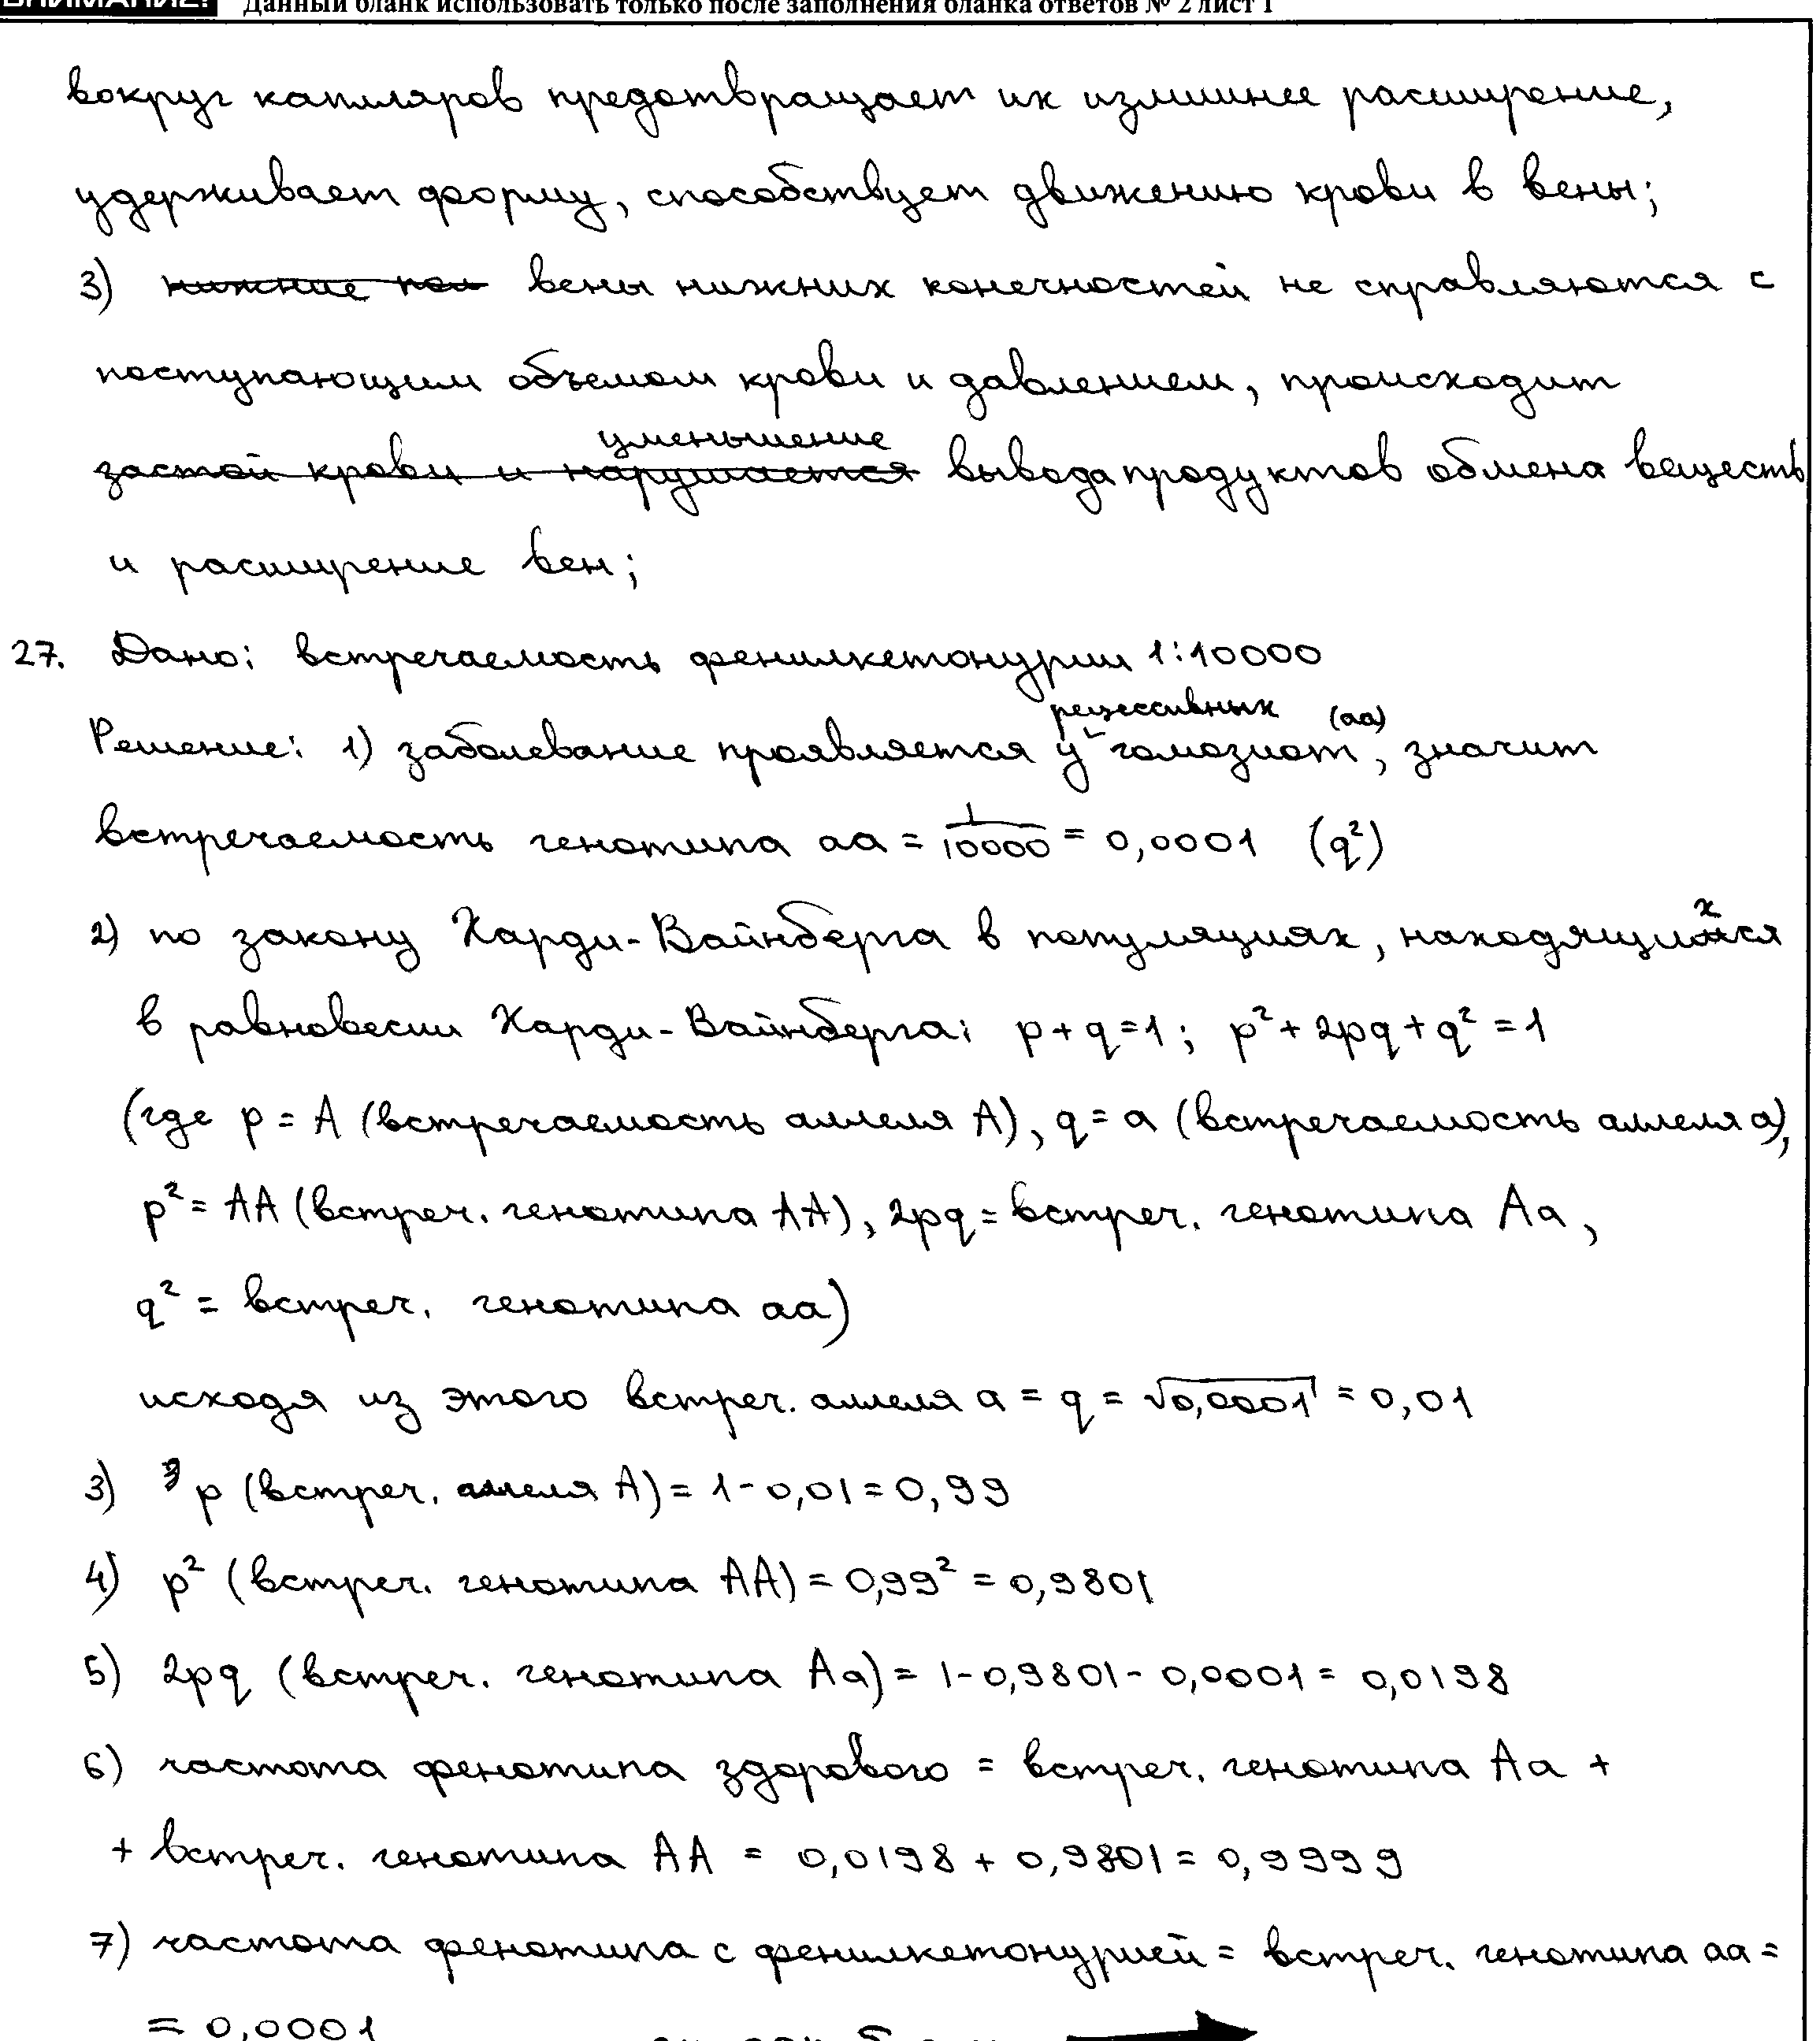 ВНИМАНИЕ! Данный бланк использовать только после заполнения бланка ответов № 2 лист 1
вокруг капиляров предотвращает их излишнее расширение,
удерживает форму, способствует движению крови в вены;
3) нижние кон вены нижних конечностей не справляются с
поступающим объемом крови и давлением, происходит
уменьшение
застой крови и нарушается вывода продуктов обмена веществ
и расширение вен;
27. Дано: встречаемость фенилкетонурии 1:10000
рецессивных (аа)
Решение: 1) заболевание проявляется у гомозигот, значит
встречаемость генотипа аа = 1/10000 = 0,0001 (q²)
2) по закону Харди-Вайнберга в популяциях, находящихся
в равновесии Харди-Вайнберга: p+q=1; p²+2pq+q²=1
(где p = A (встречаемость аллеля A), q = a (встречаемость аллеля a),
p² = AA (встреч. генотипа AA), 2pq = встреч. генотипа Aa,
q² = встреч. генотипа aa)
исходя из этого встреч. аллеля a = q = √0,0001 = 0,01
3) p (встреч. аллеля A) = 1-0,01=0,99
4) p² (встреч. генотипа AA) = 0,99² = 0,9801
5) 2pq (встреч. генотипа Aa) = 1-0,9801-0,0001 = 0,0198
6) частота фенотипа здорового = встреч. генотипа Aa +
+ встреч. генотипа AA = 0,0198 + 0,9801 = 0,9999
7) частота фенотипа с фенилкетонурией = встреч. генотипа aa =
= 0,0001